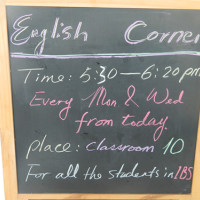 English Corner
Time: 5:30—6:20 pm
Every Mon & Wed
from today.
place: classroom 10
For all the students in IBS